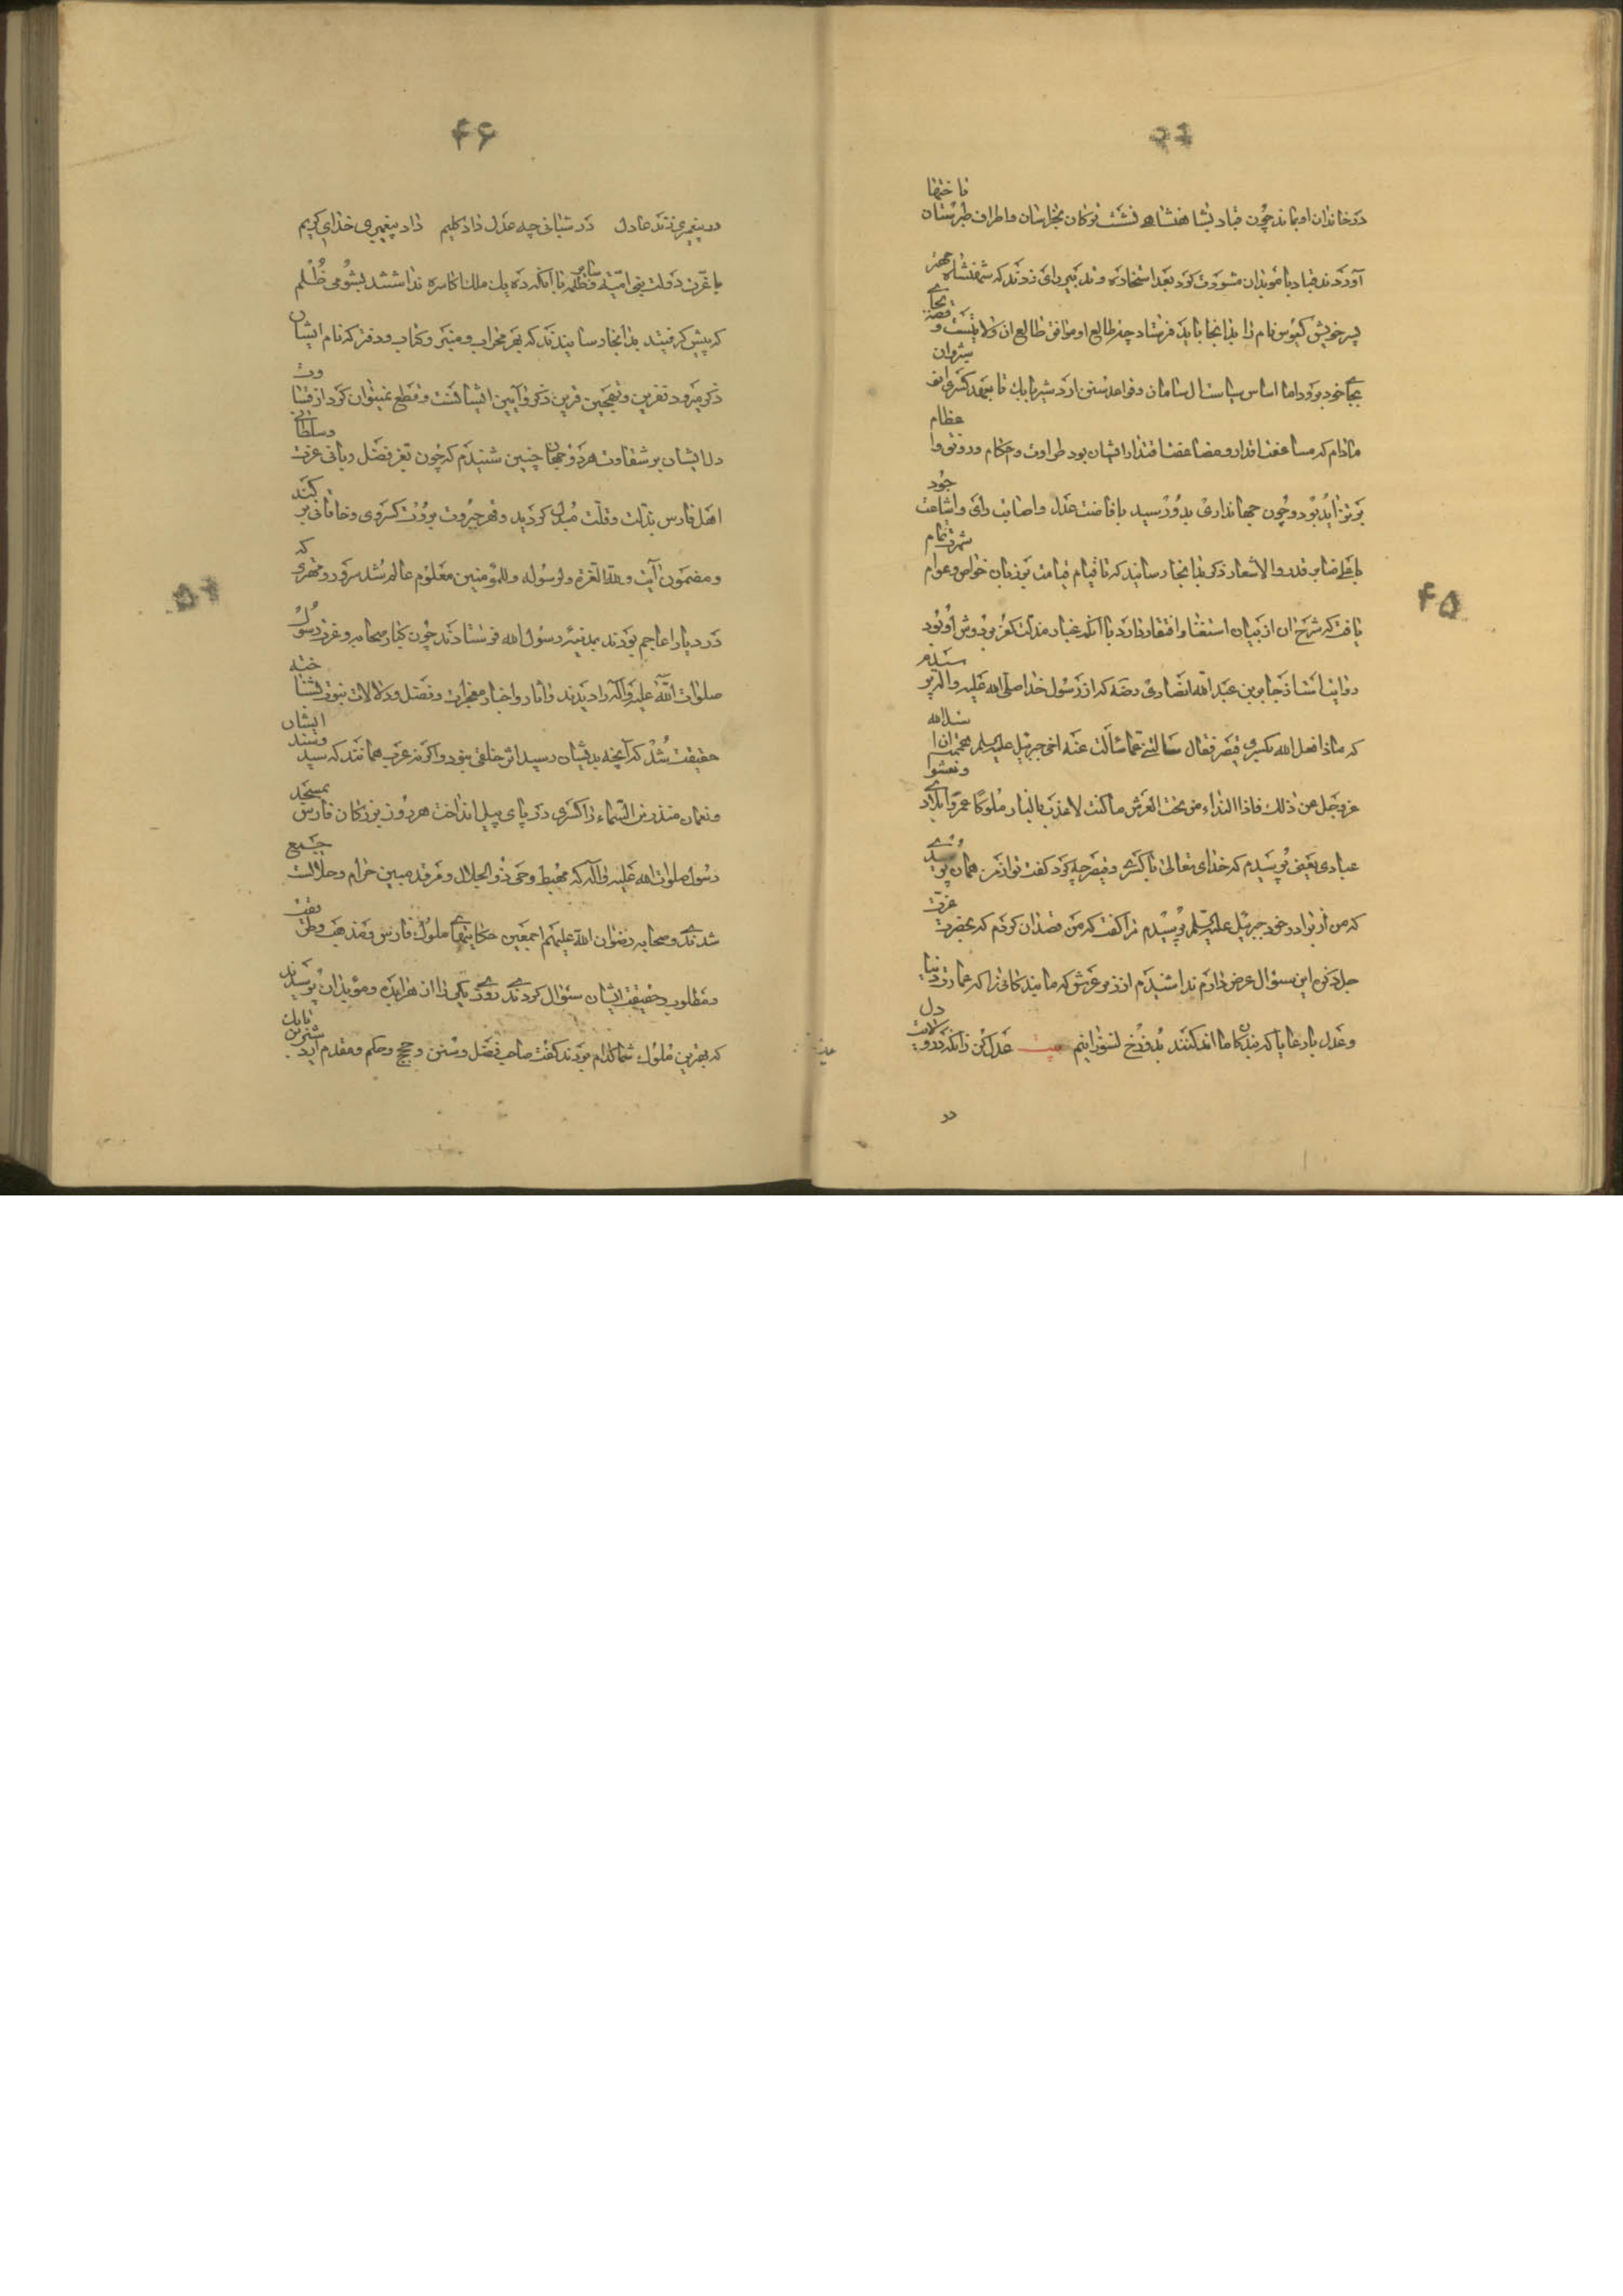 ۴۵
در خاندان او بماند چون قباد بشاهنشاهی نشست ترکان بخراسان و اطراف طبرستان تاختنها
آوردند قباد با موبدان مشورت کرد بعد استخاره و تدبیر رای زدند که شهنشاه مهتر
پسر خویش کیوس نام را بدانجا باید فرستاد چه طالع او موافق طالع آن ولایتست و قصه بجای
بجای خود برود اما اساس سیاست آل ساسان و قواعد سنن اردشیر بابک تا بعهد کسری انوشروان
مادام که مساعفت اقدار و مضا عضا قتدار ایشان بود طراوت و احکام و رونق و اعظام
بر تزاید بود و چون جهانداری بدو رسید بافاضت عدل و اصابت رای و اشاعت جود
باعلی منابر قدر و الاشعار ذکر بدانجا رسانید که تا قیام قیامت بر زبان خواص و عوام شهرت تمام
یافت که شرح آن از بیان استغنا و افتقار دارد با آنکه غبار مذلت کفر بر دوش او بود
روایتست از جابر بن عبد الله انصاری رضه که از رسول خدا صلی الله علیه واله پرسیدم
که ماذا فعل الله بکسری و قیصر فقال سالتنی عما سألت عنه اخی جبرئیل علیه السلم فهممت ان اسئل الله
عز وجل عن ذلک فاذا النداء من تحت العرش ما کنت لاعذب بالنار ملوکا عمروا بلادی ونعشوا
عبادی یعنی پرسیدم که خدای تعالی با کسری و قیصر چه کرد گفت تو از من همان پرسیدی
که من از برادر خود جبرئیل علیه السلم پرسیدم مرا گفت که من قصد آن کردم که بحضرت عزت
جل ذکره این سؤال عرض دارم ندا شنیدم از زیر عرش که ما بندگانی را که عمارت دنیا
و عدل با رعایا که بندگان ما اند کنند بدوزخ نسوزانیم بیت عدل کن زانکه در ولایت دل
در
۴۶
در پیغمبری زند عادل در شبانی چه عدل داد کلیم داد پیغمبری خدای کریم
با عزت دولت بنی امیه و تظلم با آنکه ده یک ملک اکاسره نداشتند بشومی ظلم
که پیش گرفتند بدانجا رسانیدند که بهر محراب و منبر و کتاب و دفتر که نام ایشان
ذکر میرود نفرین و تهجین قرین ذکر و آیین ایشانست و قطع نمیتوان کرد از قساوت
دل ایشان بر شقاوت هر دو جهان چنین شنیدم که چون بعز فضل ربانی عزت و سلطانی
اهل فارس بذلت و قلت مبدل گردید و قهر جبروت بروت کسروی و خاقانی بر کند
و مضمون آیت و لله العزة ولرسوله وللمؤمنین معلوم عالم شد سرور و مهتری که
در دیار اعاجم بودند بمدینه رسول الله فرستادند چون کبار صحابه و عزت رسول
صلوات الله علیه وآله را دیدند و آثار و اخبار معجزات و فضل و دلالات نبوت شناخته
حقیقت شد که آنچه بدیشان رسید اثر خلقی نبود و اگر نه عرب همانند که سیند ایشان
و نعمان منذر بن السماء را کسری در پای پیل انداخت هر روز بزرگان فارس بمسجد
رسول صلوات الله علیه و آله که مهبط وحی ذو الجلال و مرقد مبین حرام و حلالست جمع
شدندی و صحابه رضوان الله علیهم اجمعین حکایتهای ملوک فارس و مذهب و طریقت
و مطلوب و حقیقت ایشان سئوال کردندی روزی یکی را از هرابده و موبدان پرسیدند
که بهترین ملوک شما کدام بودند گفت صاحب فضل و سنن و حجج و حکم و مقدم اردشیر بن بابک